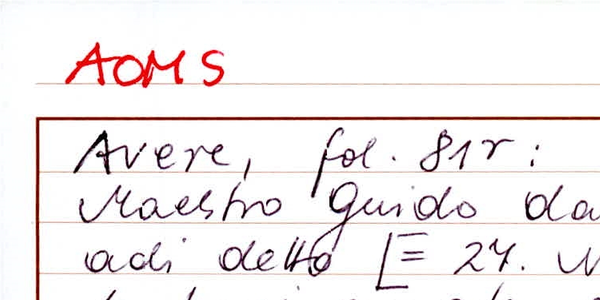 AOMS
Avere, fol. 81r:
Maestro Guido da
adi detto [= 27.